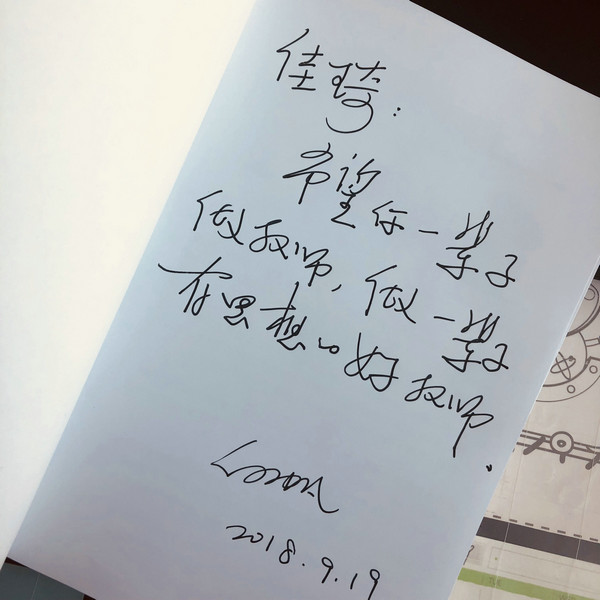 佳琦:
希望你一辈子
做教师,做一辈子
有思想的好教师.
2018.9.19